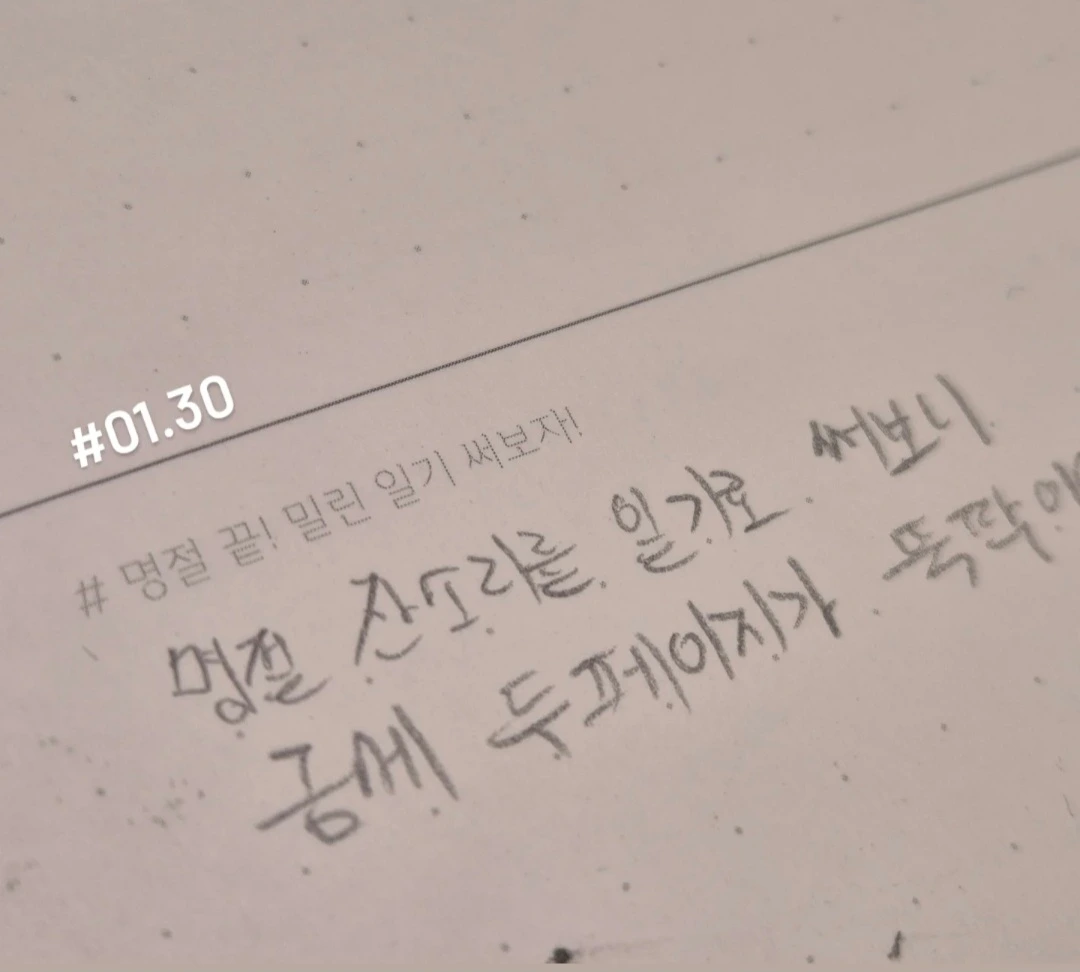 #01.30
# 명절 끝! 밀린 일기 써보자!
명절 잔소리를 일기로 써보니
금세 두페이지가 뚝딱이